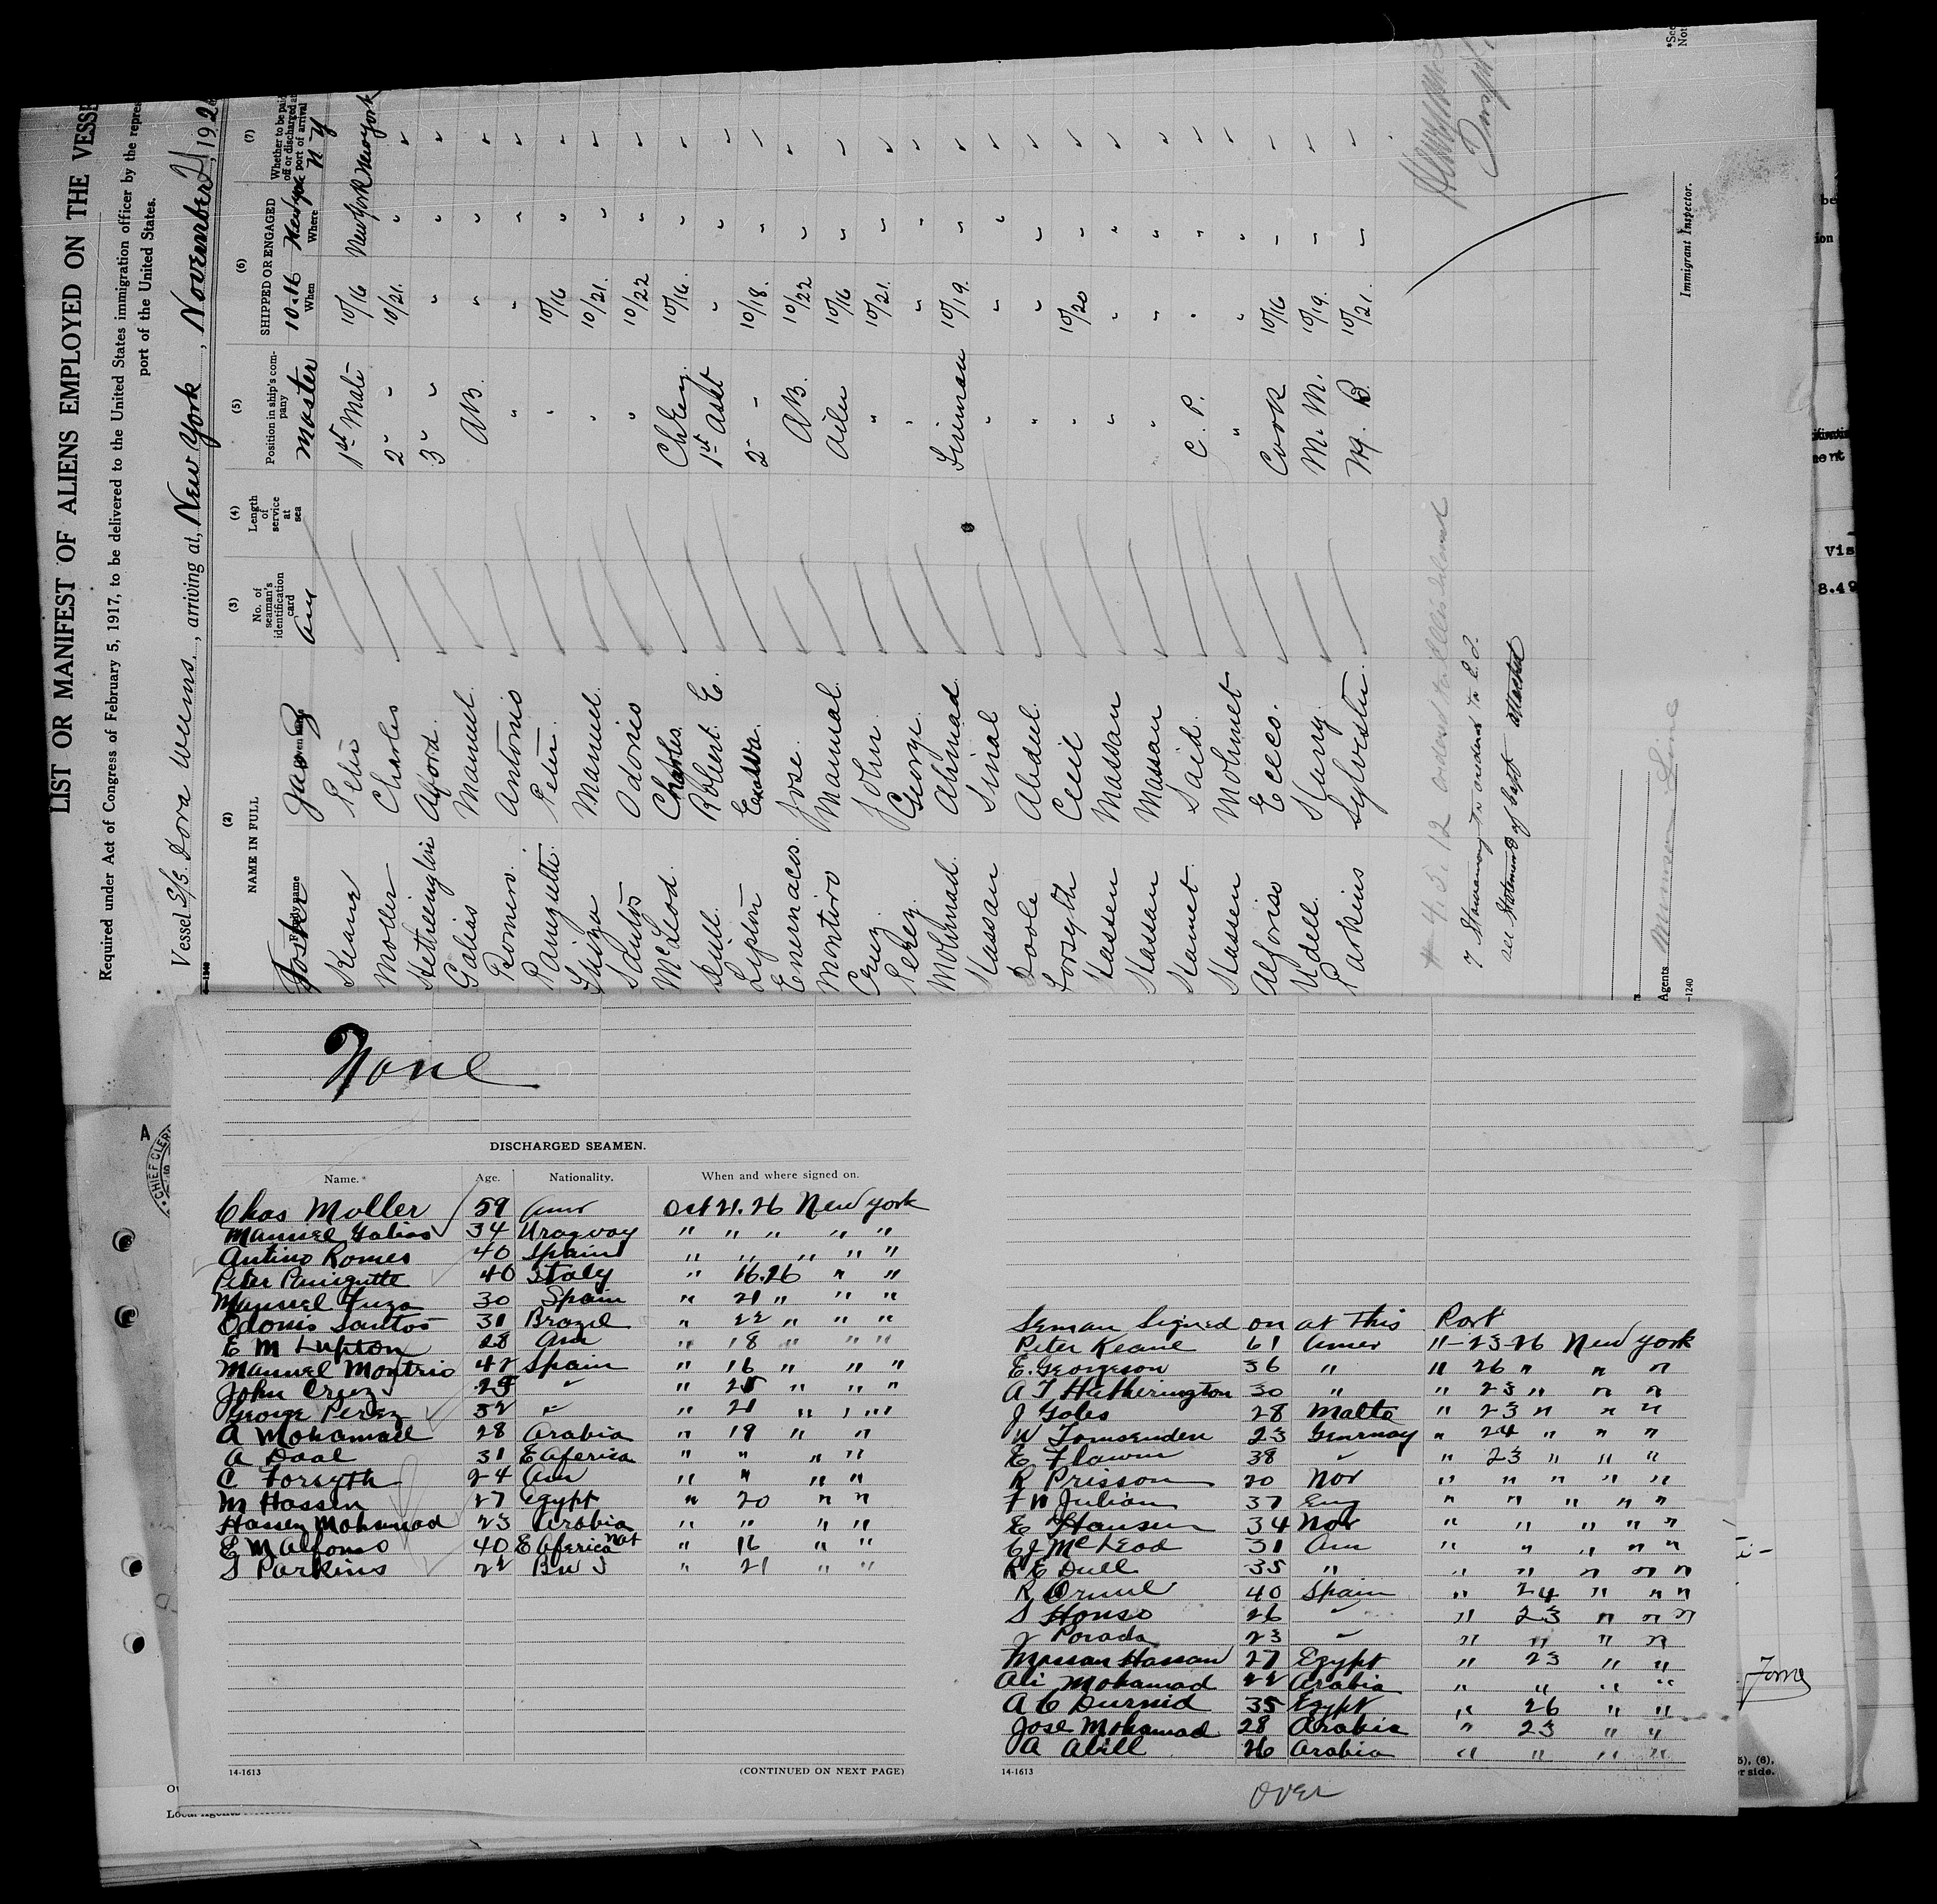 LIST OR MANIFEST OF ALIENS EMPLOYED ON THE VESSE
Required under Act of Congress of February 5, 1917, to be delivered to the United States immigration officer by the repres
port of the United States.
Vessel S/S. Dora Weems., arriving at, New York, November 21, 192
(2) (3) (4) (5) (6) (7)
NAME IN FULL No. of seaman's identification card Length of service at sea Position in ship's company SHIPPED OR ENGAGED Whether to be paid off or discharged at port of arrival
Family name Given name When Where
Foster Jas Am Master 10-16 New York N Y
Keane Peter 1st Mate 10/16 New York New York
Moller Charles 2 " 10/21. " "
Hetherington Alford 3 " " " "
Galias Manuel AB. " " "
Romero Antonio " " " "
Panizutti Peter " 10/16 " "
Manuel " 10/21. " "
Santos Odonis " 10/22 " "
McLeod Charles Ch Eng. 10/16. " "
Dull Robert E. 1st Asst " " "
Lupton 2 " 10/18. " "
Jose AB. 10/22 " "
Montiro Manual Oiler 10/16 " "
Cruz John " 10/21. " "
Perez George " " " "
Mohmad Ahmad Fireman 10/19. " "
Hassan " " " "
Doole Abdul " " " "
Forsyth Cecil " 10/20 " "
Hassen Massan " " " "
Hassan Massan " " " "
Hamet Said C. P. " " "
Hassen Mohmet " " " "
Alfonso Cook 10/16 " "
Udell Harry M. M. 10/19. " "
Parkins Sylvester M. B 10/21. " "
# 4. 3. 12 ordered to Ellis Island
7 ordered to E. I.
see Statement of Capt attached
Immigrant Inspector.
Agents Munson Line
-1240
None
DISCHARGED SEAMEN.
Name. Age. Nationality. When and where signed on.
Chas Moller 59 Amr Oct 21. 26 New York
Manuel Galias 34 Uraguay " " " " "
Antino Romes 40 Spain " " " " "
Peter Panigutte 40 Italy " 16.26 " "
Manuel Fuza 30 Spain " 21 " " "
Odonis Santos 31 Brazil " 22 " " "
E M Lupton 28 Am " 18 " " "
Manuel Montrio 42 Spain " 16 " " "
John Cruz 25 " " 25 " " "
George Perez 32 " " 21 " " "
A Mohamad 28 Arabia " 19 " "
A Daal 31 E Aferica " " " "
C Forsyth 24 Am " " " "
M Hassen 27 Egypt " 20 " "
Hassen Mohamad 23 Arabia " " " "
E M Alfonso 40 E Aferica Nat " 16 " "
S Parkins 22 B W I " 21 " "
14-1613 (CONTINUED ON NEXT PAGE)
Seman Signed on at This Port
Peter Keane 61 Amer 11-23-26 New York
E. Georgeson 36 " " 26 " " "
A T Hetherington 30 " " 23 " " "
J Goles 28 Malta " 23 " " "
W Tomsenden 23 Germay " 24 " " "
E Flawn 38 " " 23 " " "
R Prisson 20 Nor " " " " "
F W Julian 37 Eng " " " " "
E Hansen 34 Nor " " " " "
C J McLeod 31 Am " " " " "
R E Dull 35 " " " " " "
R 40 Spain " 24 " " "
S Honso 26 " " 23 " " "
J Porada 23 " " " " "
Massan Hassan 27 Egypt " 23 " "
Ali Mohamad 22 Arabia " " " "
A C Durnid 35 Egypt " 26 " "
Jose Mohamad 28 Arabia " 23 " "
A Abill 26 Arabia " " " "
14-1613
over
CHIEF CLERK